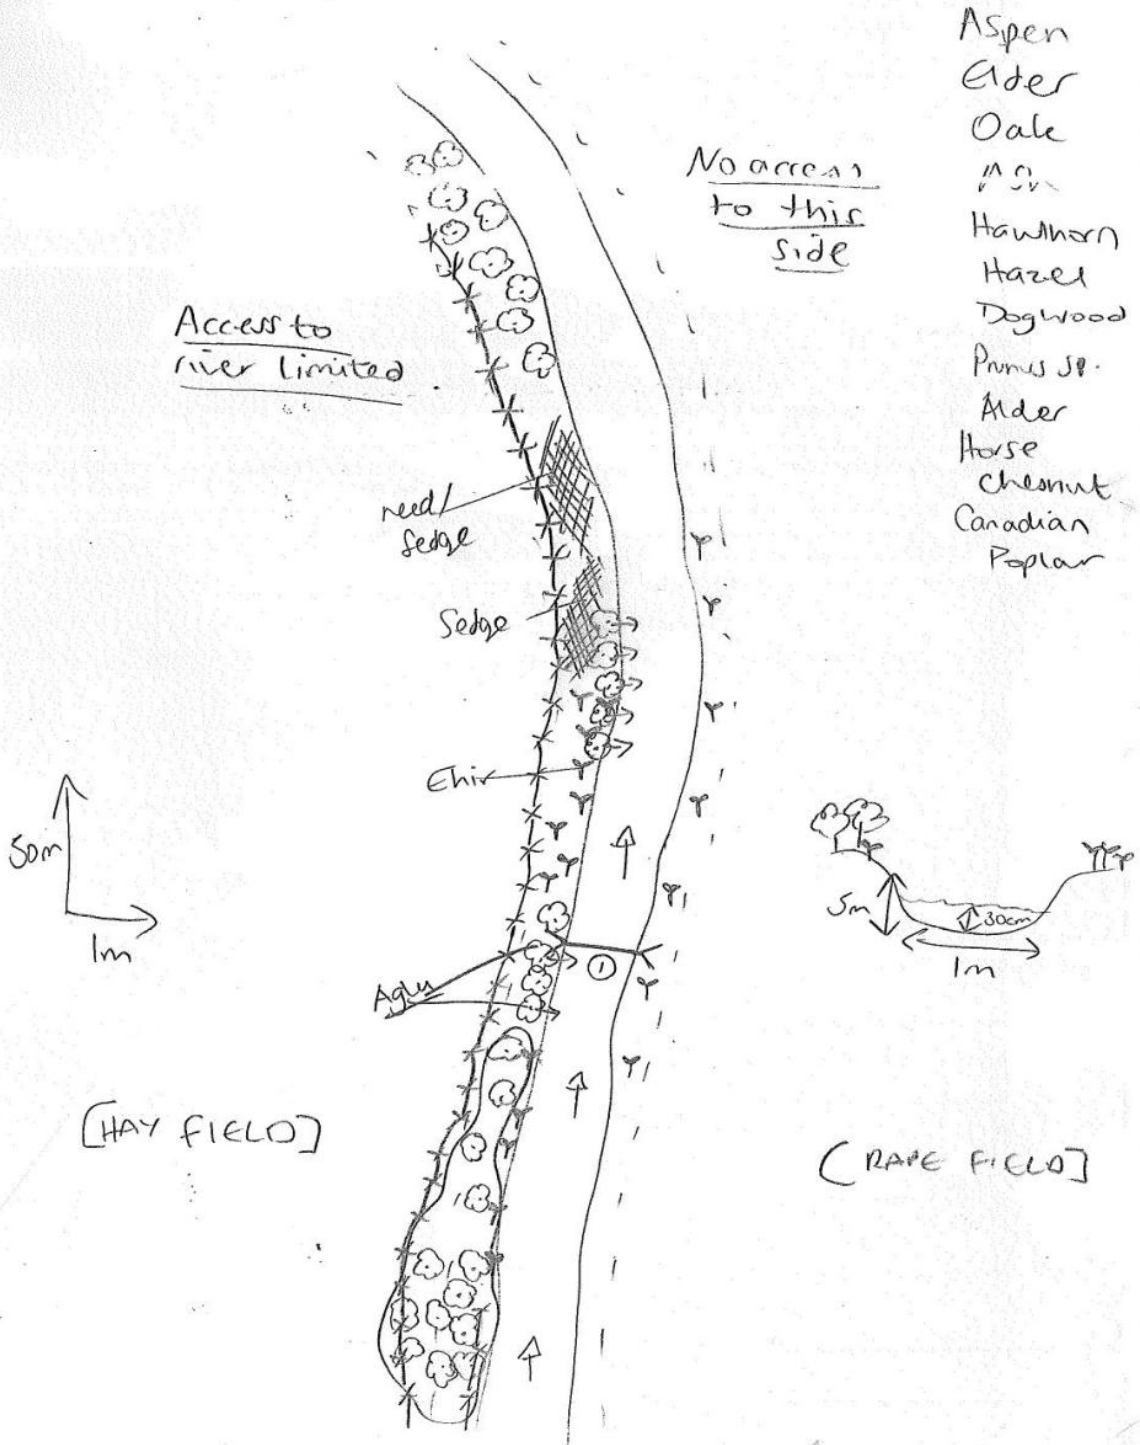 Aspen
Elder
Oak
Hawthorn
Hazel
Dogwood
Prunus sp.
Alder
Horse
Chesnut
Canadian
Poplar
No access
to this
side
Access to
river limited
reed/
Sedge
Sedge
Ehir
50m
1m
5m
30cm
1m
1
[HAY FIELD]
(RAPE FIELD]